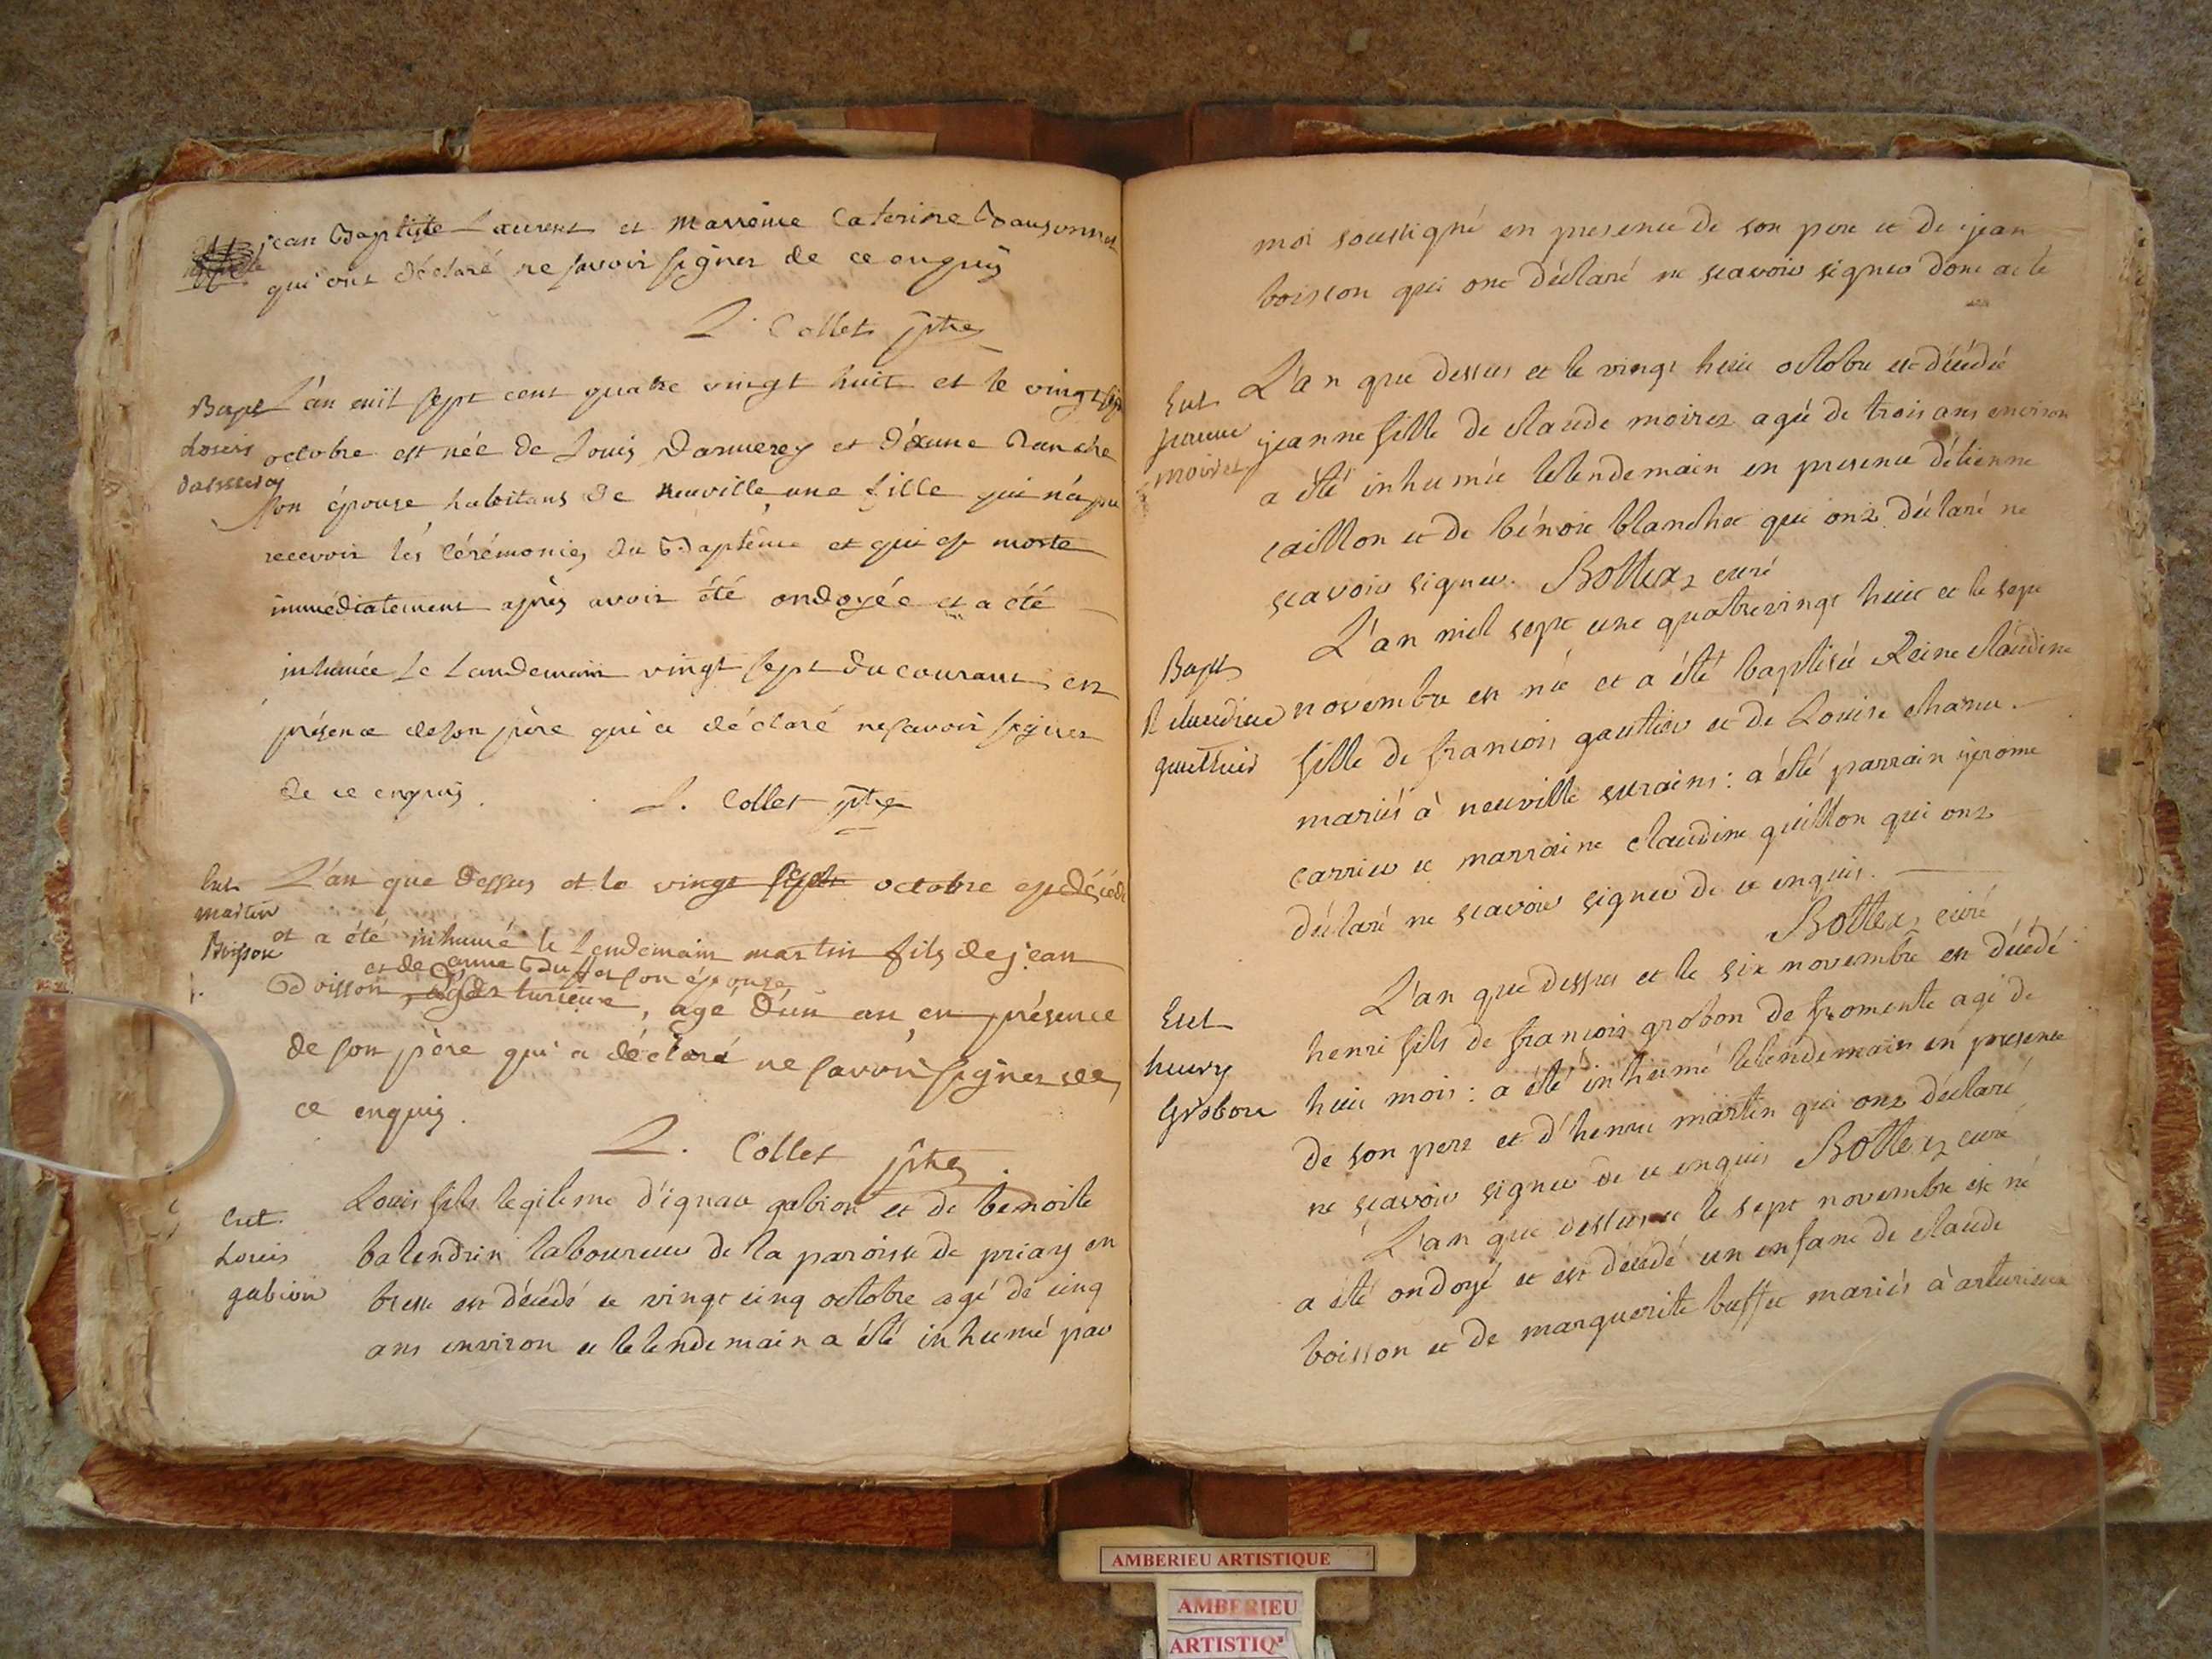 jean Baptiste Laurent et Marreine Caterine
qui ont déclaré ne savoir signer de ce enquis
L. Collet ptre
Bapt
L'an mil sept cent quatre vingt huit et le vingt six
Louis
octobre est née de Louis Darmerey et d'anne
son épouse habitans de Neuville une fille qui n'a pu
recevoir les Cérémonies du Baptême et qui est morte
immédiatement après avoir été ondoyée et a été
inhumée Le Landemain vingt sept du courant en
présence de son père qui a déclaré ne savoir signer
de ce enquis. L. Collet ptre
Ent.
L'an que dessus et le vingt sept octobre est décédé
martin
et a été inhumé le lendemain martin fils de jean
Boisson
et de anne Buffet son épouse
Boisson, agé d'un an en présence
de son père qui a déclaré ne savoir signer de
ce enquis.
L. Collet ptre
Ent.
Louis fils legitime d'ignace gabion et de benoite
Louis
balendrin laboureur de la paroisse de priay en
gabion
bresse est décédé ce vingt cinq octobre agé de cinq
ans environ et le lendemain a été inhumé par
moi soussigné en presence de son pere et de jean
boisson qui ont déclaré ne scavoir signer dont acte
Ent
L'an que dessus et le vingt huit octobre est décédée
jeanne
jeanne fille de claude moiret agée de trois ans environ
moiret
a été inhumée le lendemain en presence d'étienne
caillon et de bénoit blanchet qui ont déclaré ne
scavoir signer. Bottex curé
L'an mil sept cent quatrevingt huit et le sept
Bapt
novembre est née et a été baptisée Reine claudine
R claudine
fille de francois gautier et de Louise charu.
gauthier
mariés à neuville surains: a été parrain jerome
carrier et marraine claudine guillon qui ont
déclaré ne scavoir signer de ce enquis.
Bottex curé
L'an que dessus et le six novembre est décédé
Ent
henri fils de francois grobon de fromente agé de
henry
huit mois: a été inhumé le lendemain en presence
Grobon
de son pere et d'henri martin qui ont déclaré
ne scavoir signer de ce enquis Bottex curé
L'an que dessus et le sept novembre est né
a été ondoyé et est décédé un enfant de claude
boisson et de marguerite buffet mariés à arturieux
AMBERIEU ARTISTIQUE
AMBERIEU
ARTISTIQ